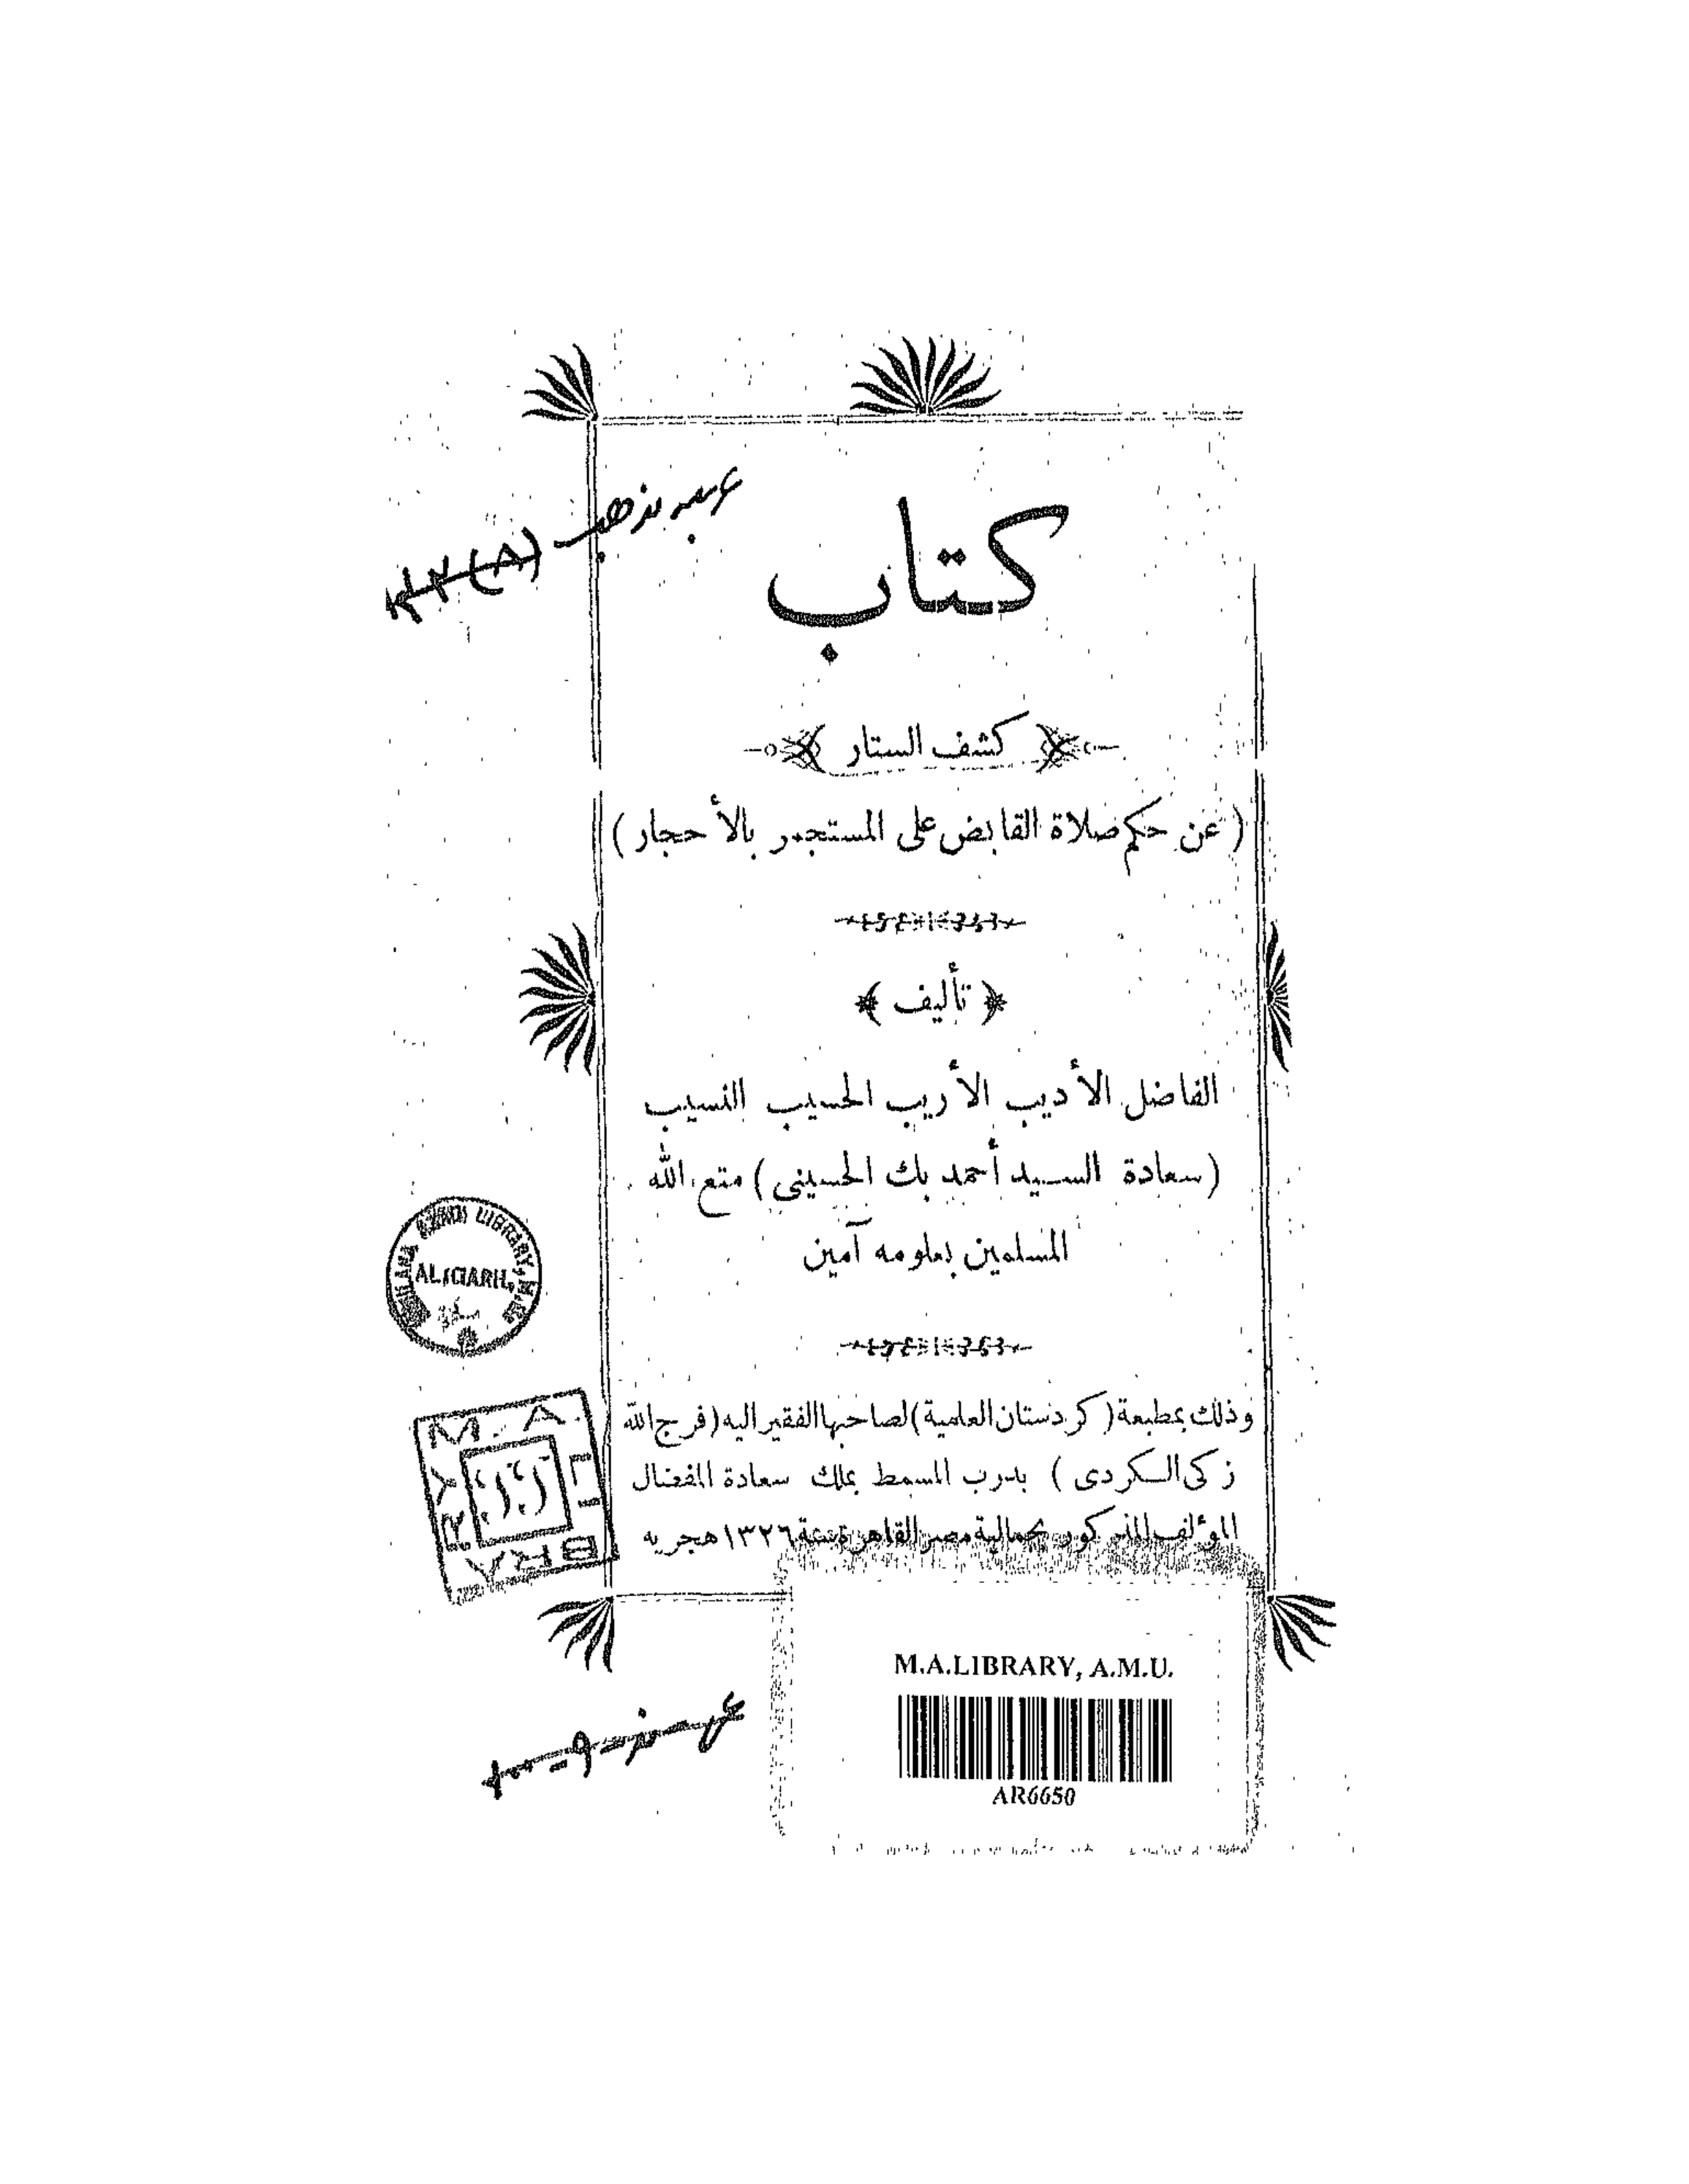 كتاب
﴿ كشف الستار ﴾
( عن حكم صلاة القابض على المستجمر بالأحجار )
﴿ تأليف ﴾
الفاضل الأديب الأريب الحسيب النسيب
(سعادة السيد أحمد بك الحسينى) متع الله
المسلمين بعلومه آمين
وذلك بمطبعة (كردستان العلمية) لصاحبها الفقير اليه (فرج الله
زكى الكردى ) بدرب المسمط بملك سعادة المفضال
المؤلف المذكور بجمالية مصر القاهرة سنة ١٣٢٦ هجريه
AZAD LIBRARY
ALIGARH
M. A. LIBRARY
M.A.LIBRARY, A.M.U.
AR6650